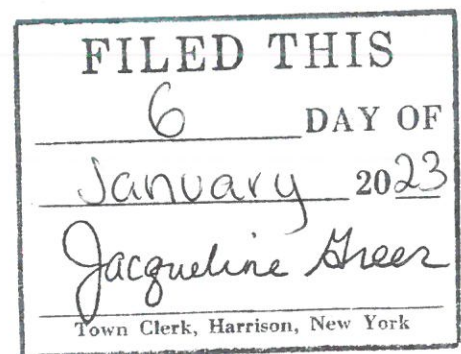 FILED THIS
6 DAY OF
January 2023
Jacqueline Greer
Town Clerk, Harrison, New York